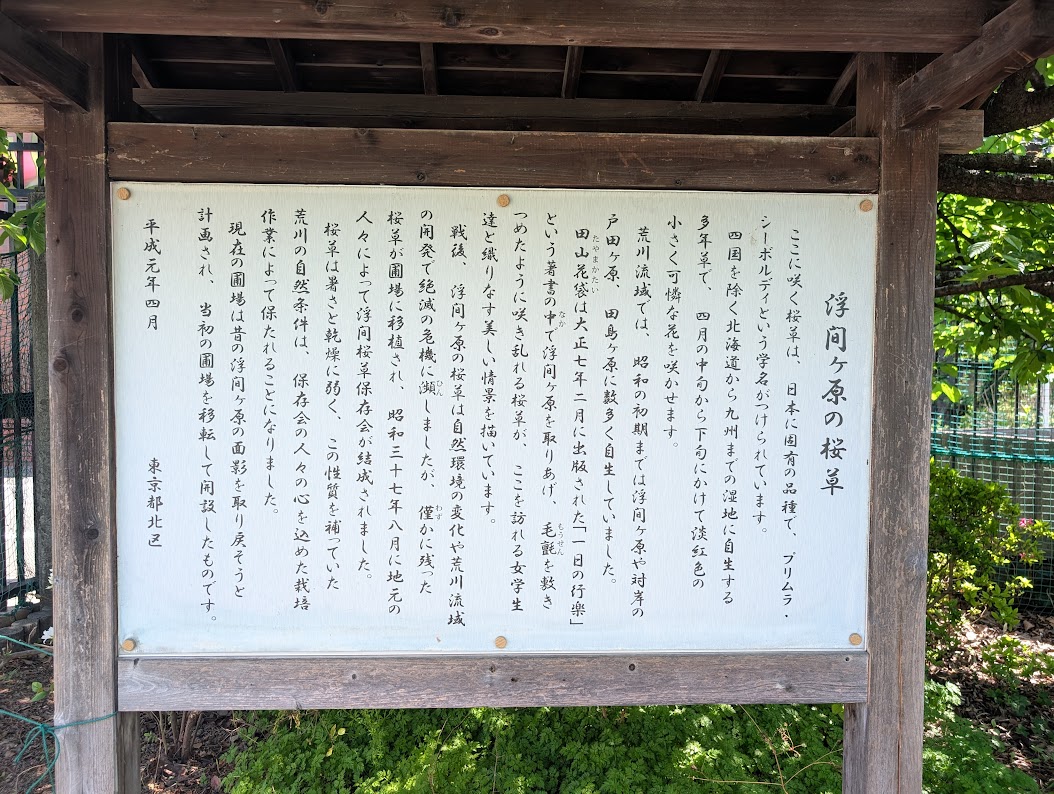 浮間ヶ原の桜草
ここに咲く桜草は、日本に固有の品種で、プリムラ・
シーボルディという学名がつけられています。
四国を除く北海道から九州までの湿地に自生する
多年草で、四月の中旬から下旬にかけて淡紅色の
小さく可憐な花を咲かせます。
荒川流域では、昭和の初期までは浮間ヶ原や対岸の
戸田ヶ原、田島ヶ原に数多く自生していました。
田山花袋は大正七年二月に出版された「一日の行楽」
たやまかたい
という著書の中で浮間ヶ原を取りあげ、毛氈を敷き
なか
もうせん
つめたように咲き乱れる桜草が、ここを訪れる女学生
達と織りなす美しい情景を描いています。
戦後、浮間ヶ原の桜草は自然環境の変化や荒川流域
の開発で絶滅の危機に瀕しましたが、僅かに残った
ひん
わず
桜草が圃場に移植され、昭和三十七年八月に地元の
人々によって浮間桜草保存会が結成されました。
桜草は暑さと乾燥に弱く、この性質を補っていた
荒川の自然条件は、保存会の人々の心を込めた栽培
作業によって保たれることになりました。
現在の圃場は昔の浮間ヶ原の面影を取り戻そうと
計画され、当初の圃場を移転して開設したものです。
平成元年四月
東京都北区